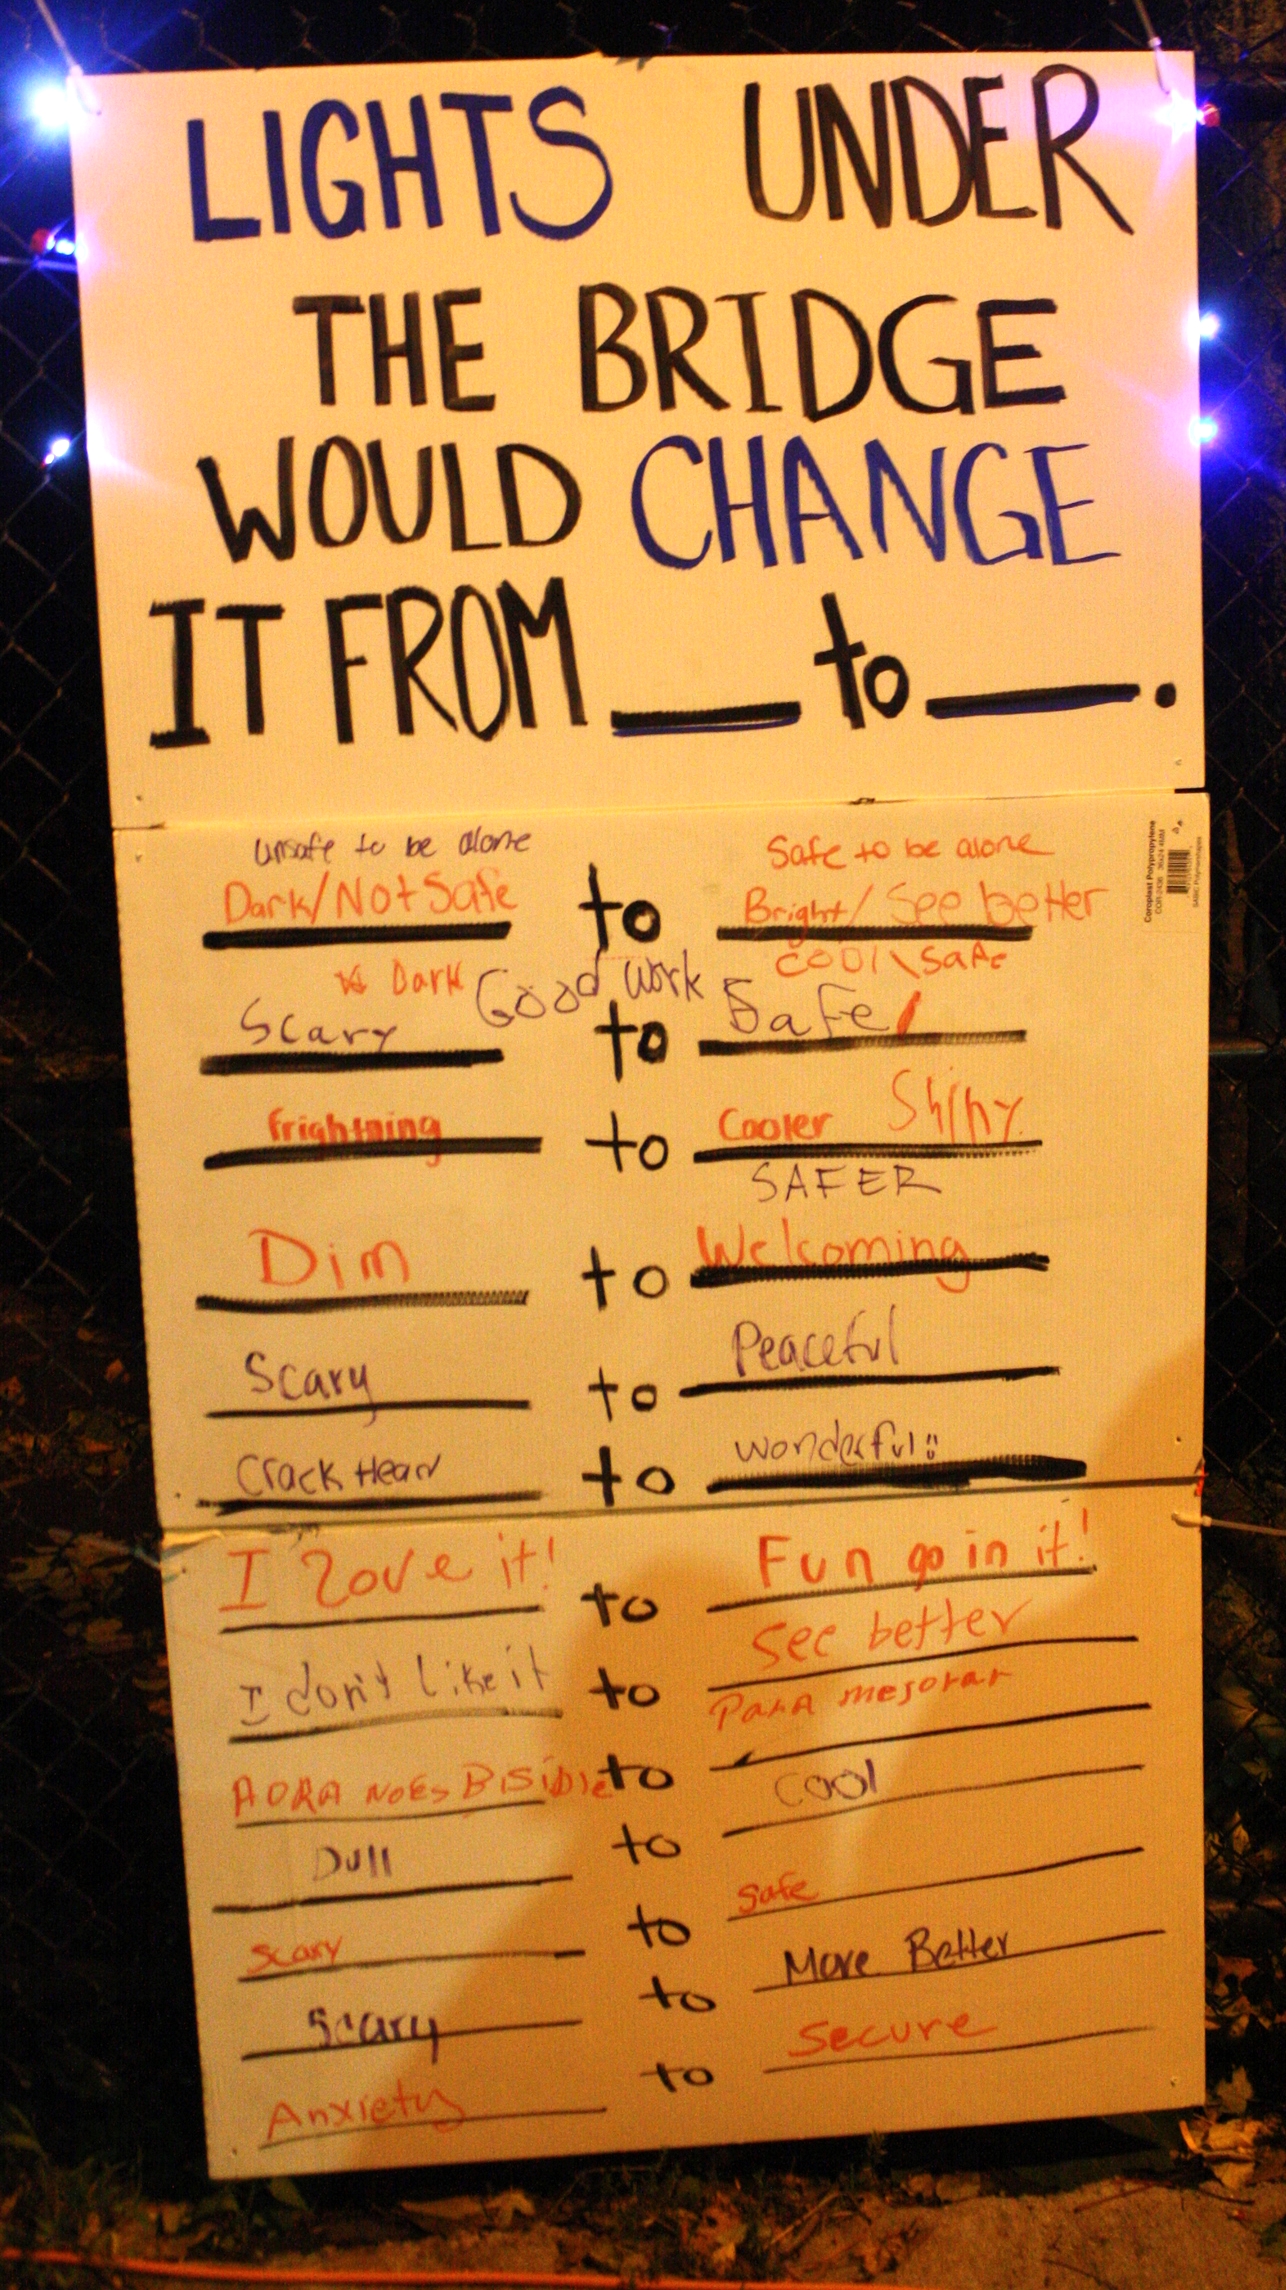 LIGHTS UNDER
THE BRIDGE
WOULD CHANGE
IT FROM ___ to ___.
unsafe to be alone Safe to be alone
Dark/Not Safe to Bright/See better
Dark Good work cool\safe
Scary to Safe
frightning to Cooler Shiny
SAFER
Dim to Welcoming
Scary to Peaceful
Crack Head to wonderful
I love it! to Fun go in it!
I don't like it to See better
AORA NOES BISIBLE to PARA mejorar
Dull to cool
scary to safe
Scary to More Better
Anxiety to Secure
Coroplast Polypropylene